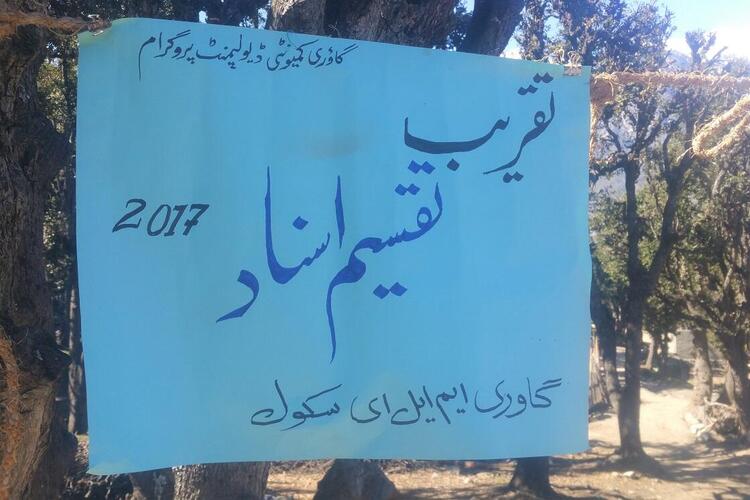 گاؤری کمیونٹی ڈیولپمنٹ پروگرام
تقریب
تقسیم اسناد
2017
گاوری ایم ایل ای سکول